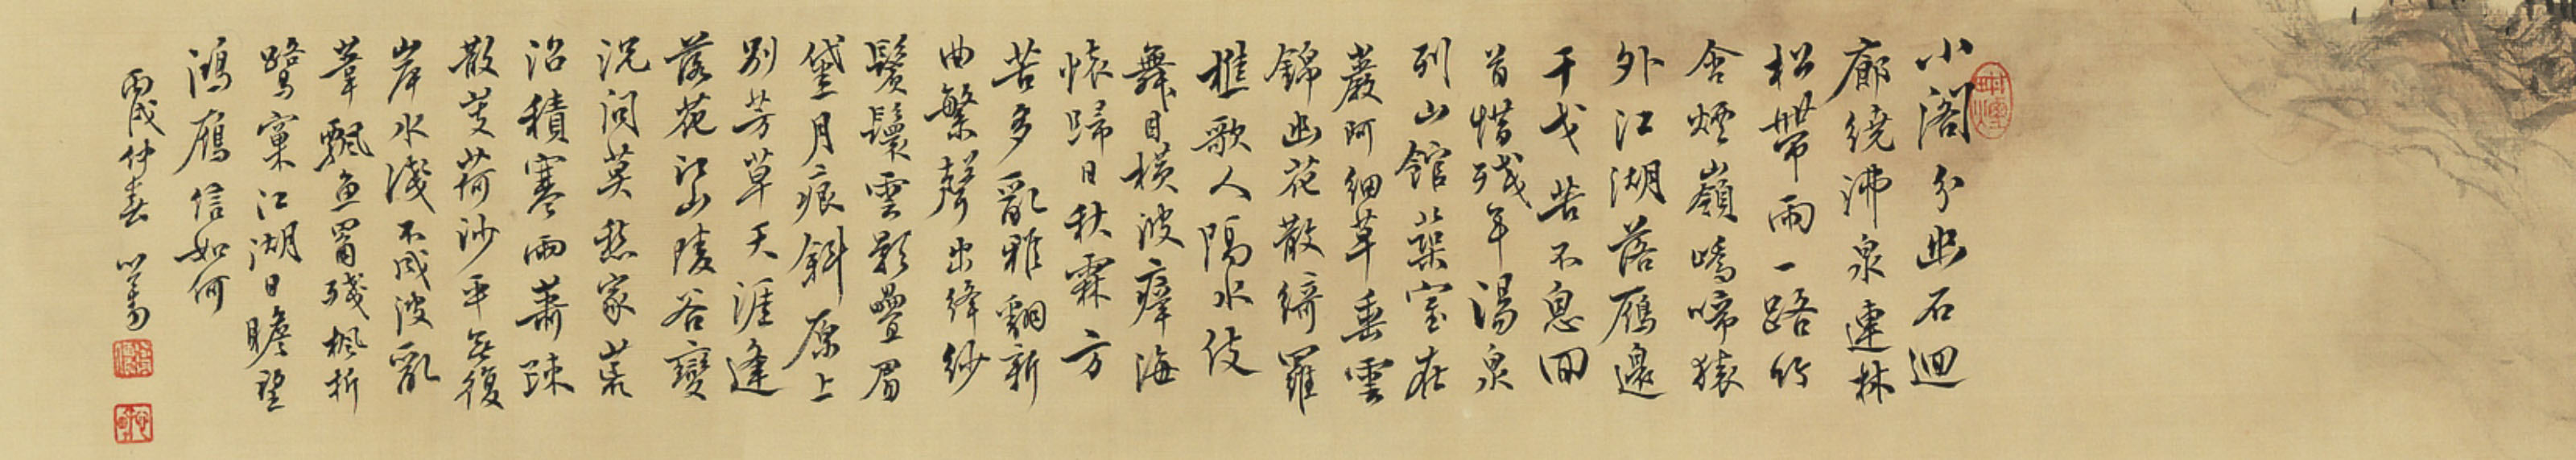 小阁分幽石迴
廊繞沸泉連林
松帶雨一路竹
含煙嶺嶠啼猿
外江湖落雁邊
干戈苦不息回
首惜殘年湯泉
列山館蘂室在
巖阿細草垂雲
錦幽花散綺羅
樵歌人隔水伎
舞目橫波瘴海
懷歸日秋霖方
苦多亂雅翻新
曲繁聲出絳紗
鬢鬟雲影疊眉
黛月痕斜原上
別芳草天涯逢
落花江山陵谷變
況問莫愁家荒
沼積寒雨蕭疎
散芰荷沙平無復
岸水淺不成波亂
葦飄魚罶殘楓折
鷺窠江湖日瞻望
鴻雁信如何
丙戌仲春 心畬